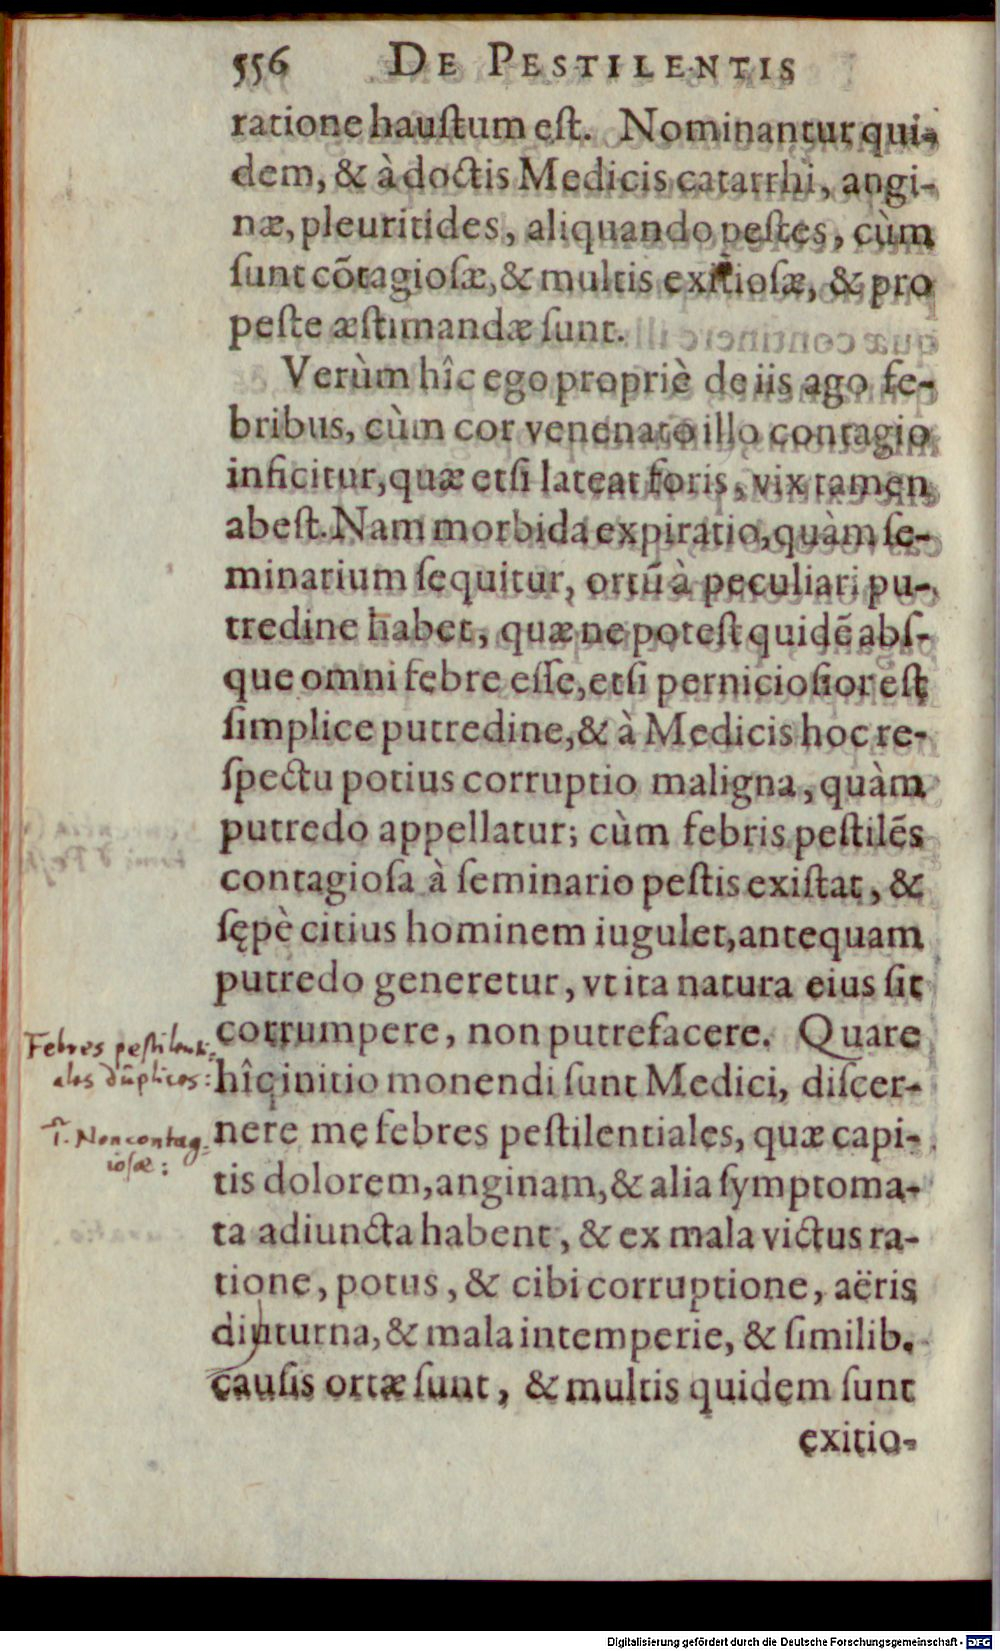 556 DE PESTILENTIS
ratione haustum est. Nominantur qui-
dem, & à doctis Medicis catarrhi, angi-
næ, pleuritides, aliquando pestes, cùm
sunt cõtagiosæ, & multis exitiosæ, & pro
peste æstimandæ sunt.
Verùm hîc ego propriè de iis ago fe-
bribus, cùm cor venenato illo contagio
inficitur, quæ etsi lateat foris, vix tamen
abest. Nam morbida expiratio, quàm se-
minarium sequitur, ortũ à peculiari pu-
tredine habet, quæ ne potest quidẽ abs-
que omni febre esse, etsi perniciosior est
simplice putredine, & à Medicis hoc re-
spectu potius corruptio maligna, quàm
putredo appellatur; cùm febris pestilẽs
contagiosa à seminario pestis existat, &
sępè citius hominem iugulet, antequam
putredo generetur, vt ita natura eius sit
corrumpere, non putrefacere. Quare
hîc initio monendi sunt Medici, discer-
nere me febres pestilentiales, quæ capi-
tis dolorem, anginam, & alia symptoma-
ta adiuncta habent, & ex mala victus ra-
tione, potus, & cibi corruptione, aëris
diuturna, & mala intemperie, & similib.
causis ortæ sunt, & multis quidem sunt
exitio-
Febres pestilenti-
ales duplices:
1. Non contag-
iosæ:
Digitalisierung gefördert durch die Deutsche Forschungsgemeinschaft - DFG